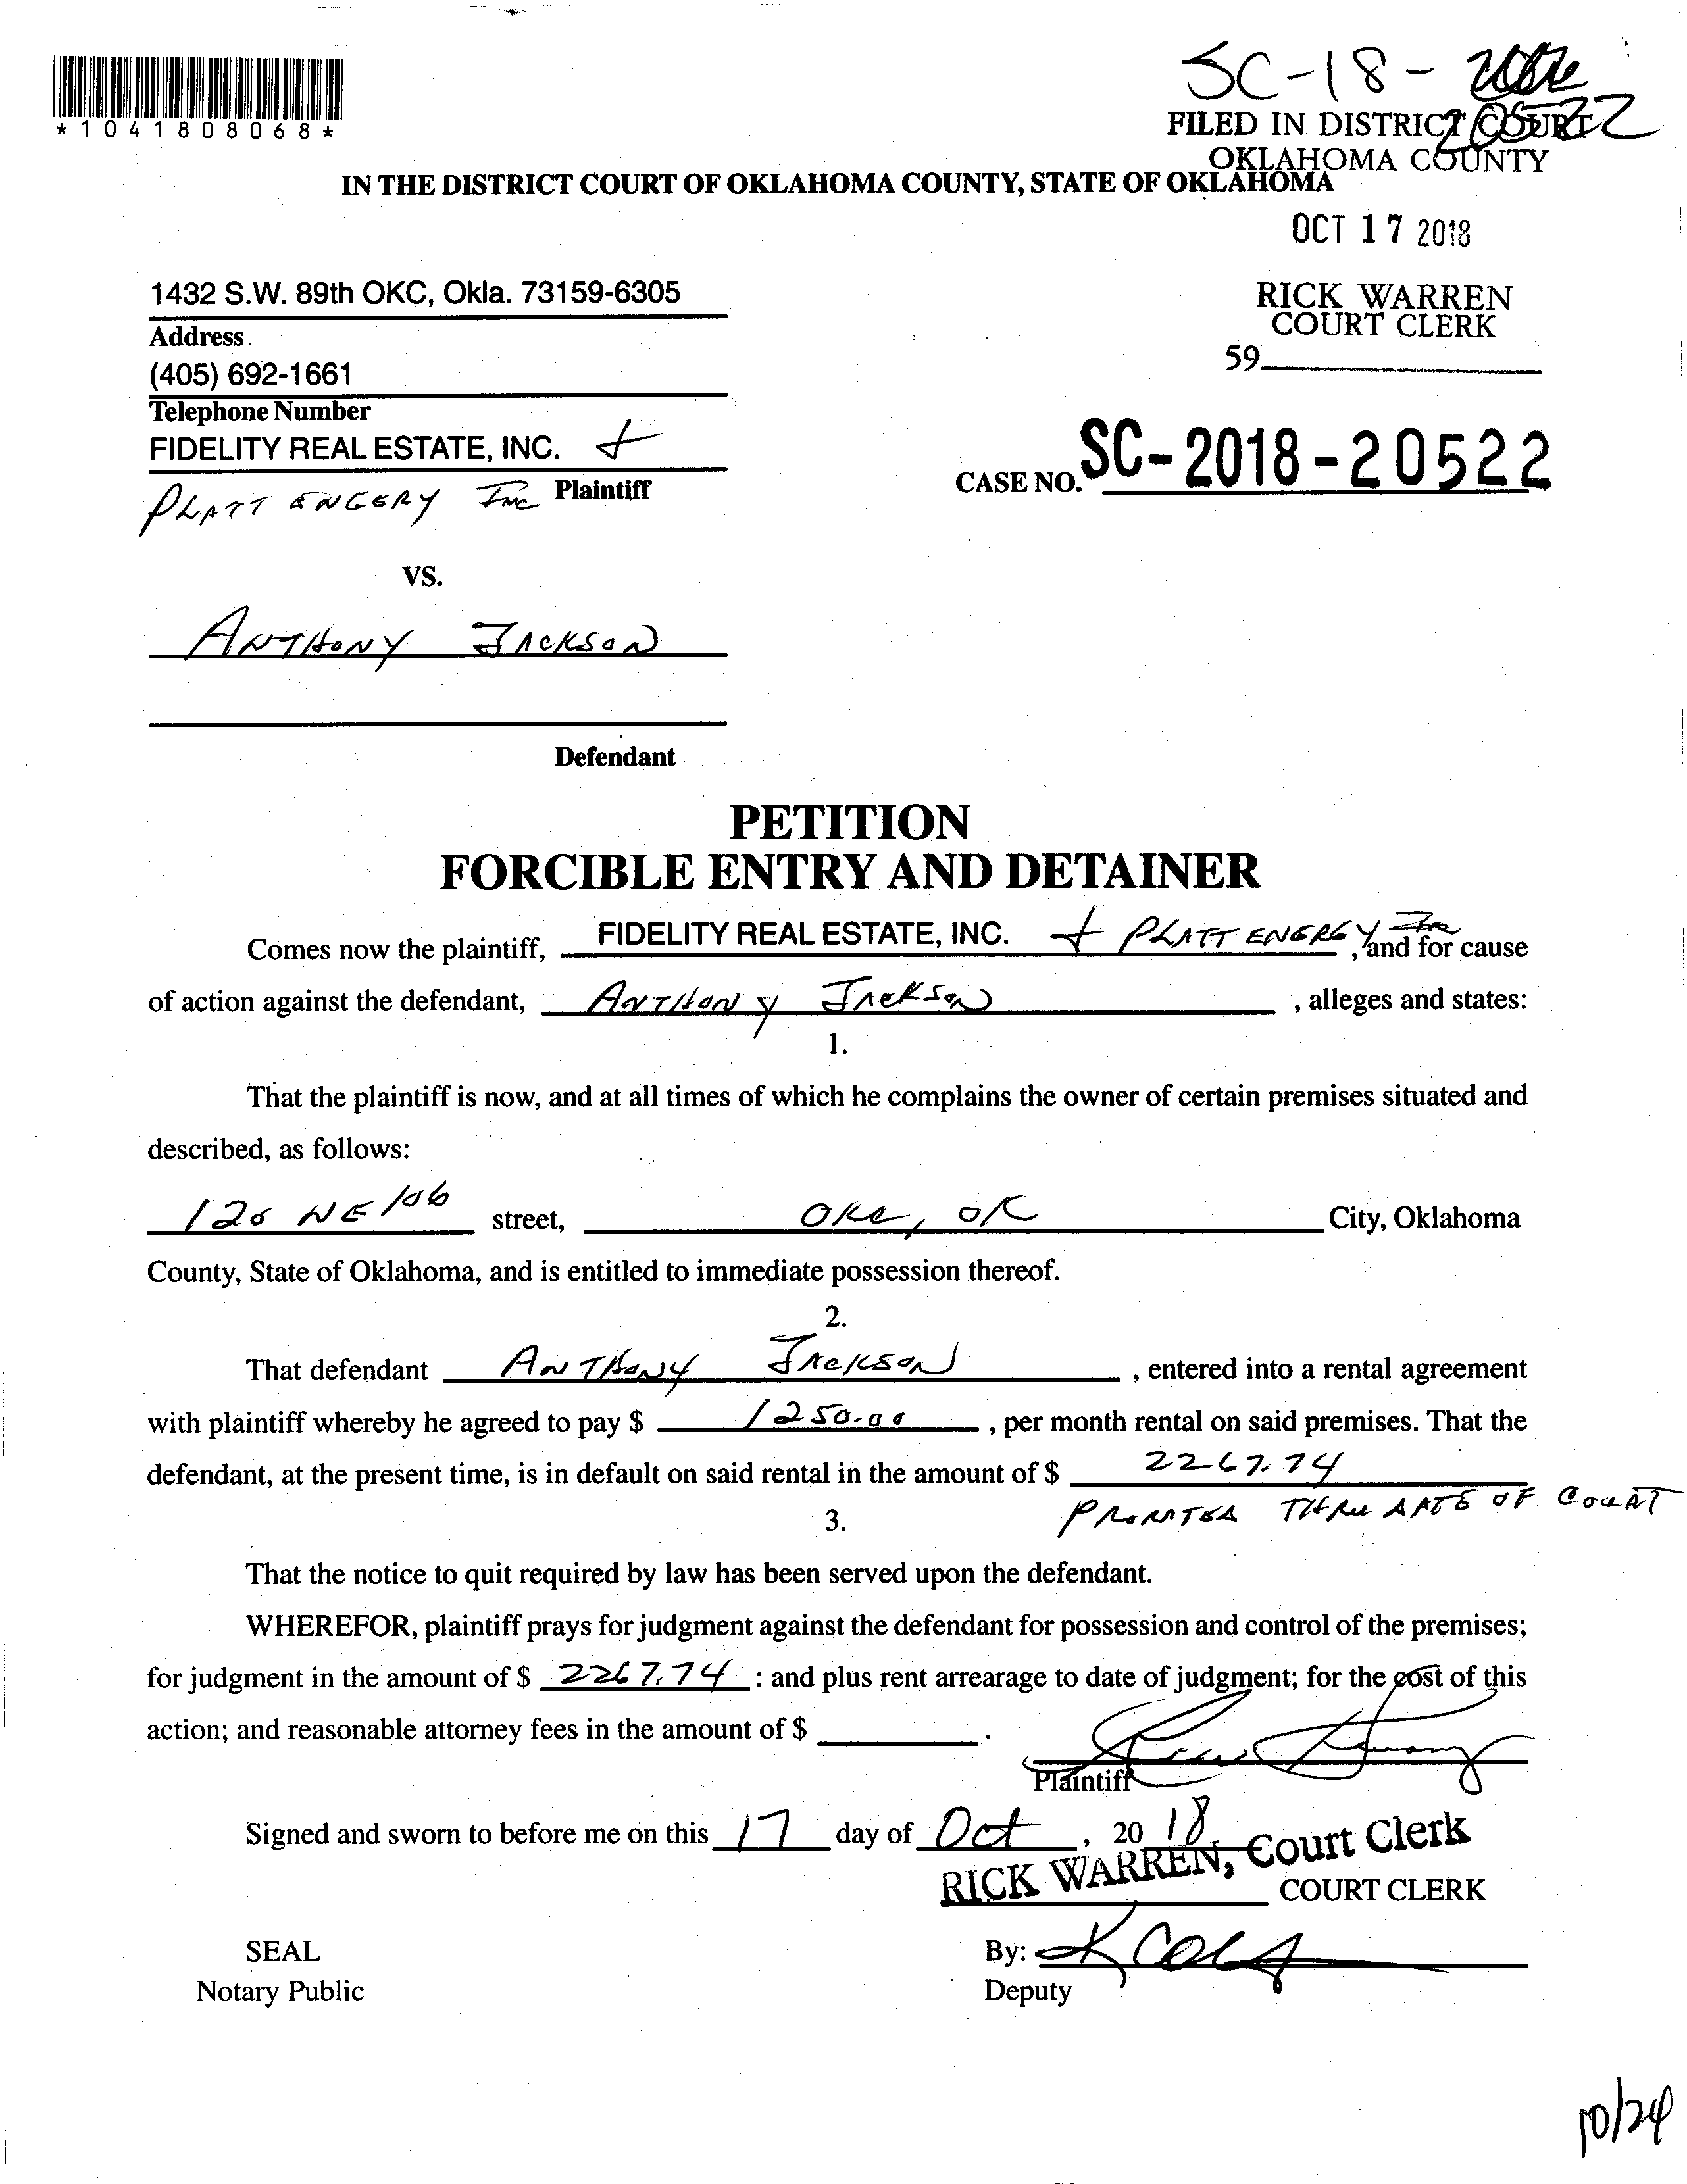 SC-18-
20522
*1041808068*
FILED IN DISTRICT COURT
OKLAHOMA COUNTY
IN THE DISTRICT COURT OF OKLAHOMA COUNTY, STATE OF OKLAHOMA
OCT 17 2018
1432 S.W. 89th OKC, Okla. 73159-6305
RICK WARREN
Address
COURT CLERK
(405) 692-1661
59
Telephone Number
FIDELITY REAL ESTATE, INC. +
CASE NO. SC-2018-20522
PLATT ENGERY Inc Plaintiff
VS.
ANTHONY JACKSON
Defendant
PETITION
FORCIBLE ENTRY AND DETAINER
Comes now the plaintiff, FIDELITY REAL ESTATE, INC. + PLATT ENERGY Inc, and for cause
of action against the defendant, ANTHONY JACKSON, alleges and states:
1.
That the plaintiff is now, and at all times of which he complains the owner of certain premises situated and
described, as follows:
120 NE 106 street, OKC, OK City, Oklahoma
County, State of Oklahoma, and is entitled to immediate possession thereof.
2.
That defendant ANTHONY JACKSON, entered into a rental agreement
with plaintiff whereby he agreed to pay $ 1250.00, per month rental on said premises. That the
defendant, at the present time, is in default on said rental in the amount of $ 2267.74
PRORATED THRU DATE OF COURT
3.
That the notice to quit required by law has been served upon the defendant.
WHEREFOR, plaintiff prays for judgment against the defendant for possession and control of the premises;
for judgment in the amount of $ 2267.74 : and plus rent arrearage to date of judgment; for the cost of this
action; and reasonable attorney fees in the amount of $ .
Plaintiff
Signed and sworn to before me on this 17 day of Oct, 2018
RICK WARREN, Court Clerk
COURT CLERK
SEAL
By:
Notary Public
Deputy
10/24